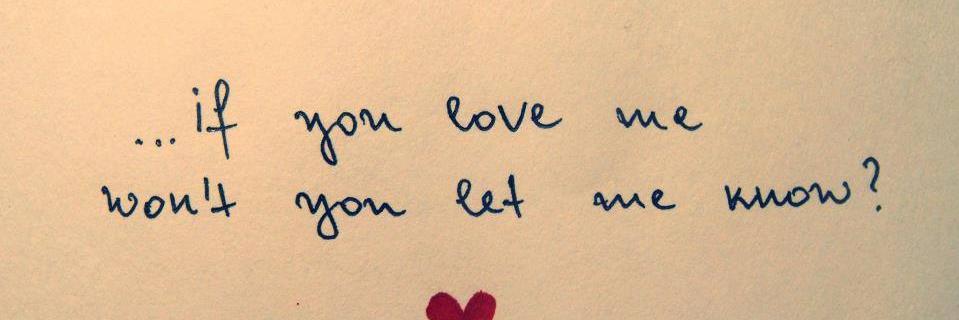 ...if you love me
won't you let me know?